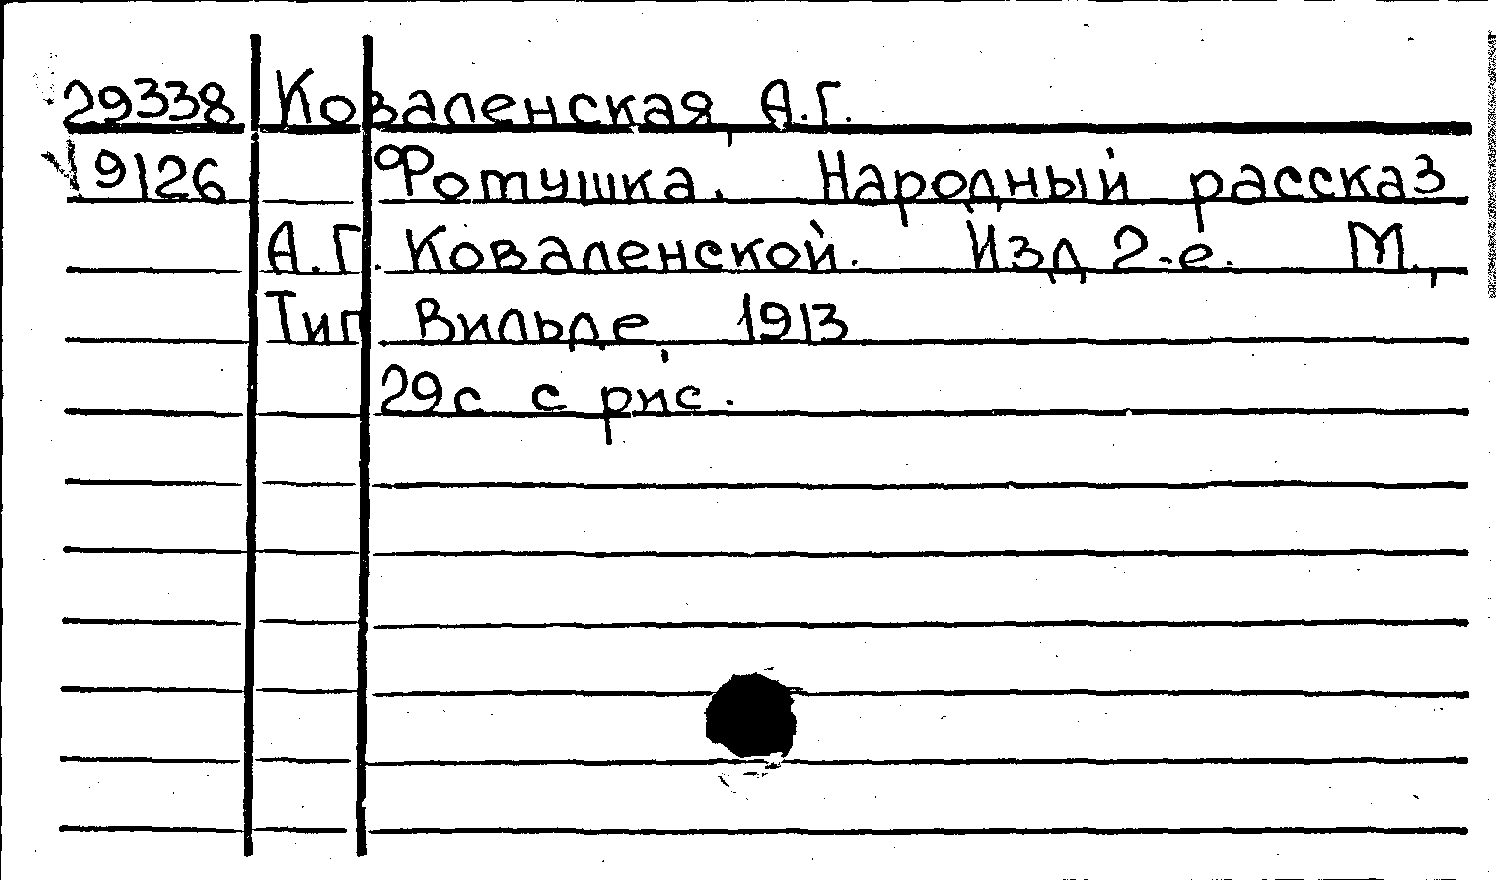 29338 Коваленская, А.Г.
9126 Фотушка. Народный рассказ
А.Г. Коваленской. Изд 2-е. М.,
Тип Вильде, 1913
29с с рис.